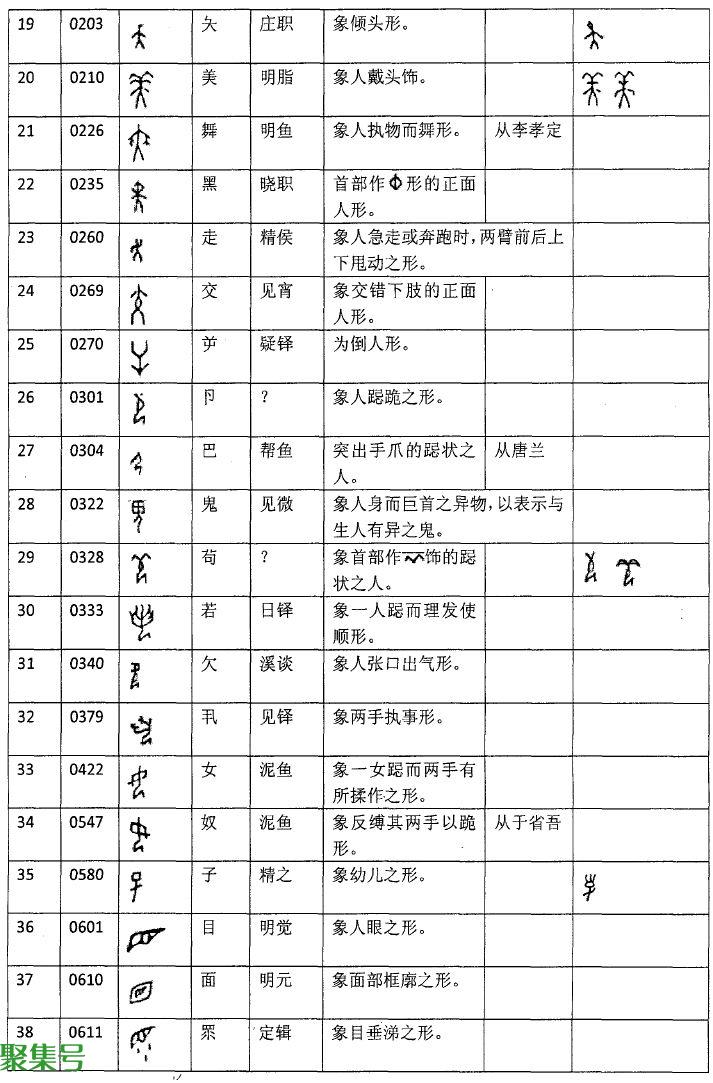 19 0203 夨 庄职 象倾头形。
20 0210 美 明脂 象人戴头饰。
21 0226 舞 明鱼 象人执物而舞形。 从李孝定
22 0235 黑 晓职 首部作形的正面
人形。
23 0260 走 精侯 象人急走或奔跑时，两臂前后上
下甩动之形。
24 0269 交 见宵 象交错下肢的正面
人形。
25 0270 屰 疑铎 为倒人形。
26 0301 卩 ? 象人跽跪之形。
27 0304 巴 帮鱼 突出手爪的跽状之 从唐兰
人。
28 0322 鬼 见微 象人身而巨首之异物，以表示与
生人有异之鬼。
29 0328 苟 ? 象首部作饰的跽
状之人。
30 0333 若 日铎 象一人跽而理发使
顺形。
31 0340 欠 溪谈 象人张口出气形。
32 0379 丮 见铎 象两手执事形。
33 0422 女 泥鱼 象一女跽而两手有
所揉作之形。
34 0547 奴 泥鱼 象反缚其两手以跪 从于省吾
形。
35 0580 子 精之 象幼儿之形。
36 0601 目 明觉 象人眼之形。
37 0610 面 明元 象面部框廓之形。
38 0611 眔 定辑 象目垂涕之形。
聚集号